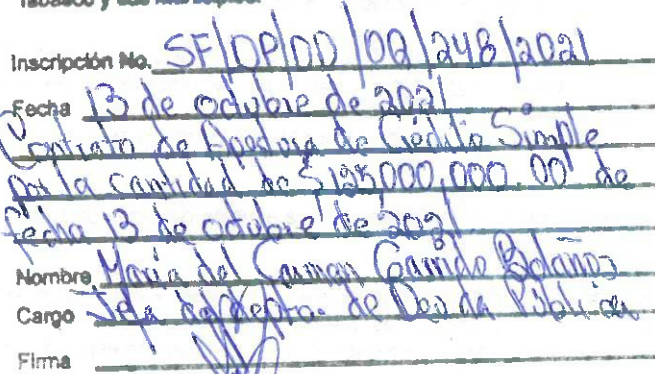 Tabasco y sus Municipios.
Inscripción No. SF/DP/DD/02/248/2021
Fecha 13 de octubre de 2021
Contrato de Apertura de Crédito Simple
por la cantidad de $125,000,000.00 de
fecha 13 de octubre de 2021
Nombre María del Carmen Garrido Bolaños
Cargo Jefa del Depto. de Deuda Pública
Firma